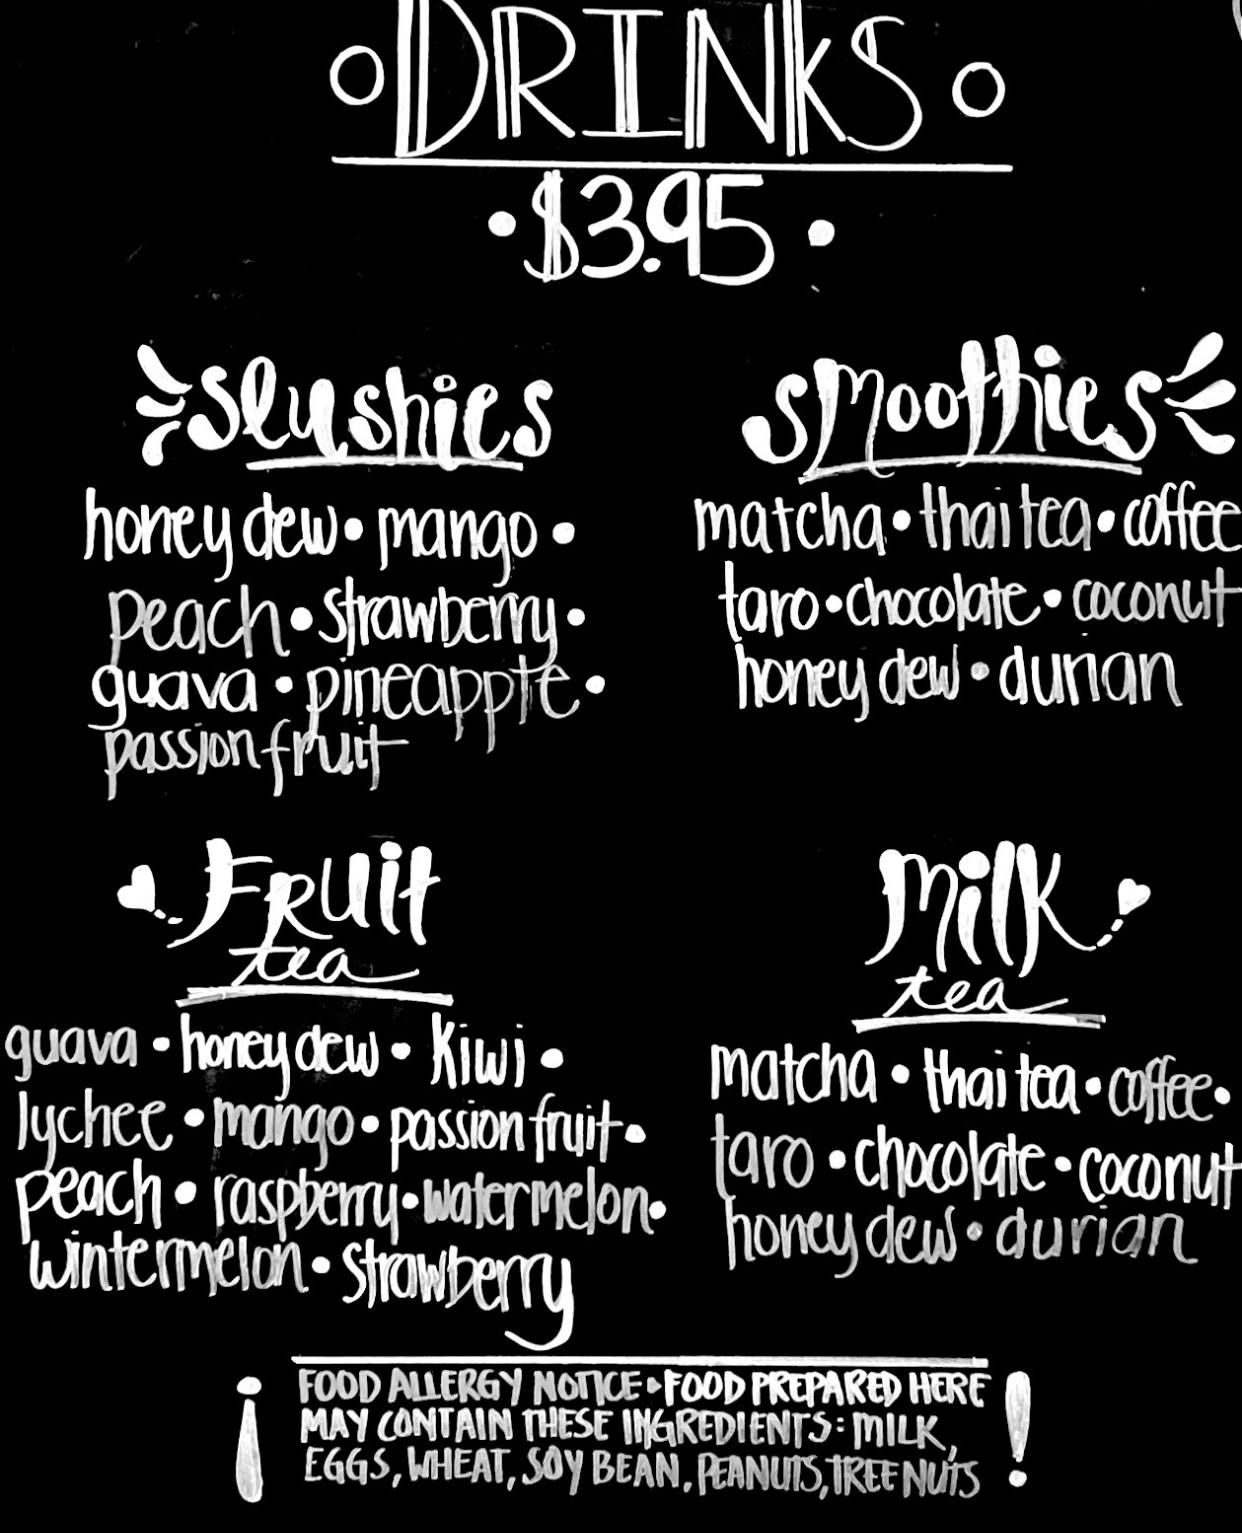 DRINKS
$3.95
Slushies
honey dew • mango •
peach • strawberry •
guava • pineapple •
passion fruit
smoothies
matcha • thai tea • coffee
taro • chocolate • coconut
honey dew • durian
Fruit
tea
guava • honey dew • kiwi •
lychee • mango • passion fruit •
peach • raspberry • watermelon •
wintermelon • strawberry
Milk
tea
matcha • thai tea • coffee •
taro • chocolate • coconut
honey dew • durian
¡ FOOD ALLERGY NOTICE • FOOD PREPARED HERE
MAY CONTAIN THESE INGREDIENTS: MILK,
EGGS, WHEAT, SOY BEAN, PEANUTS, TREE NUTS !